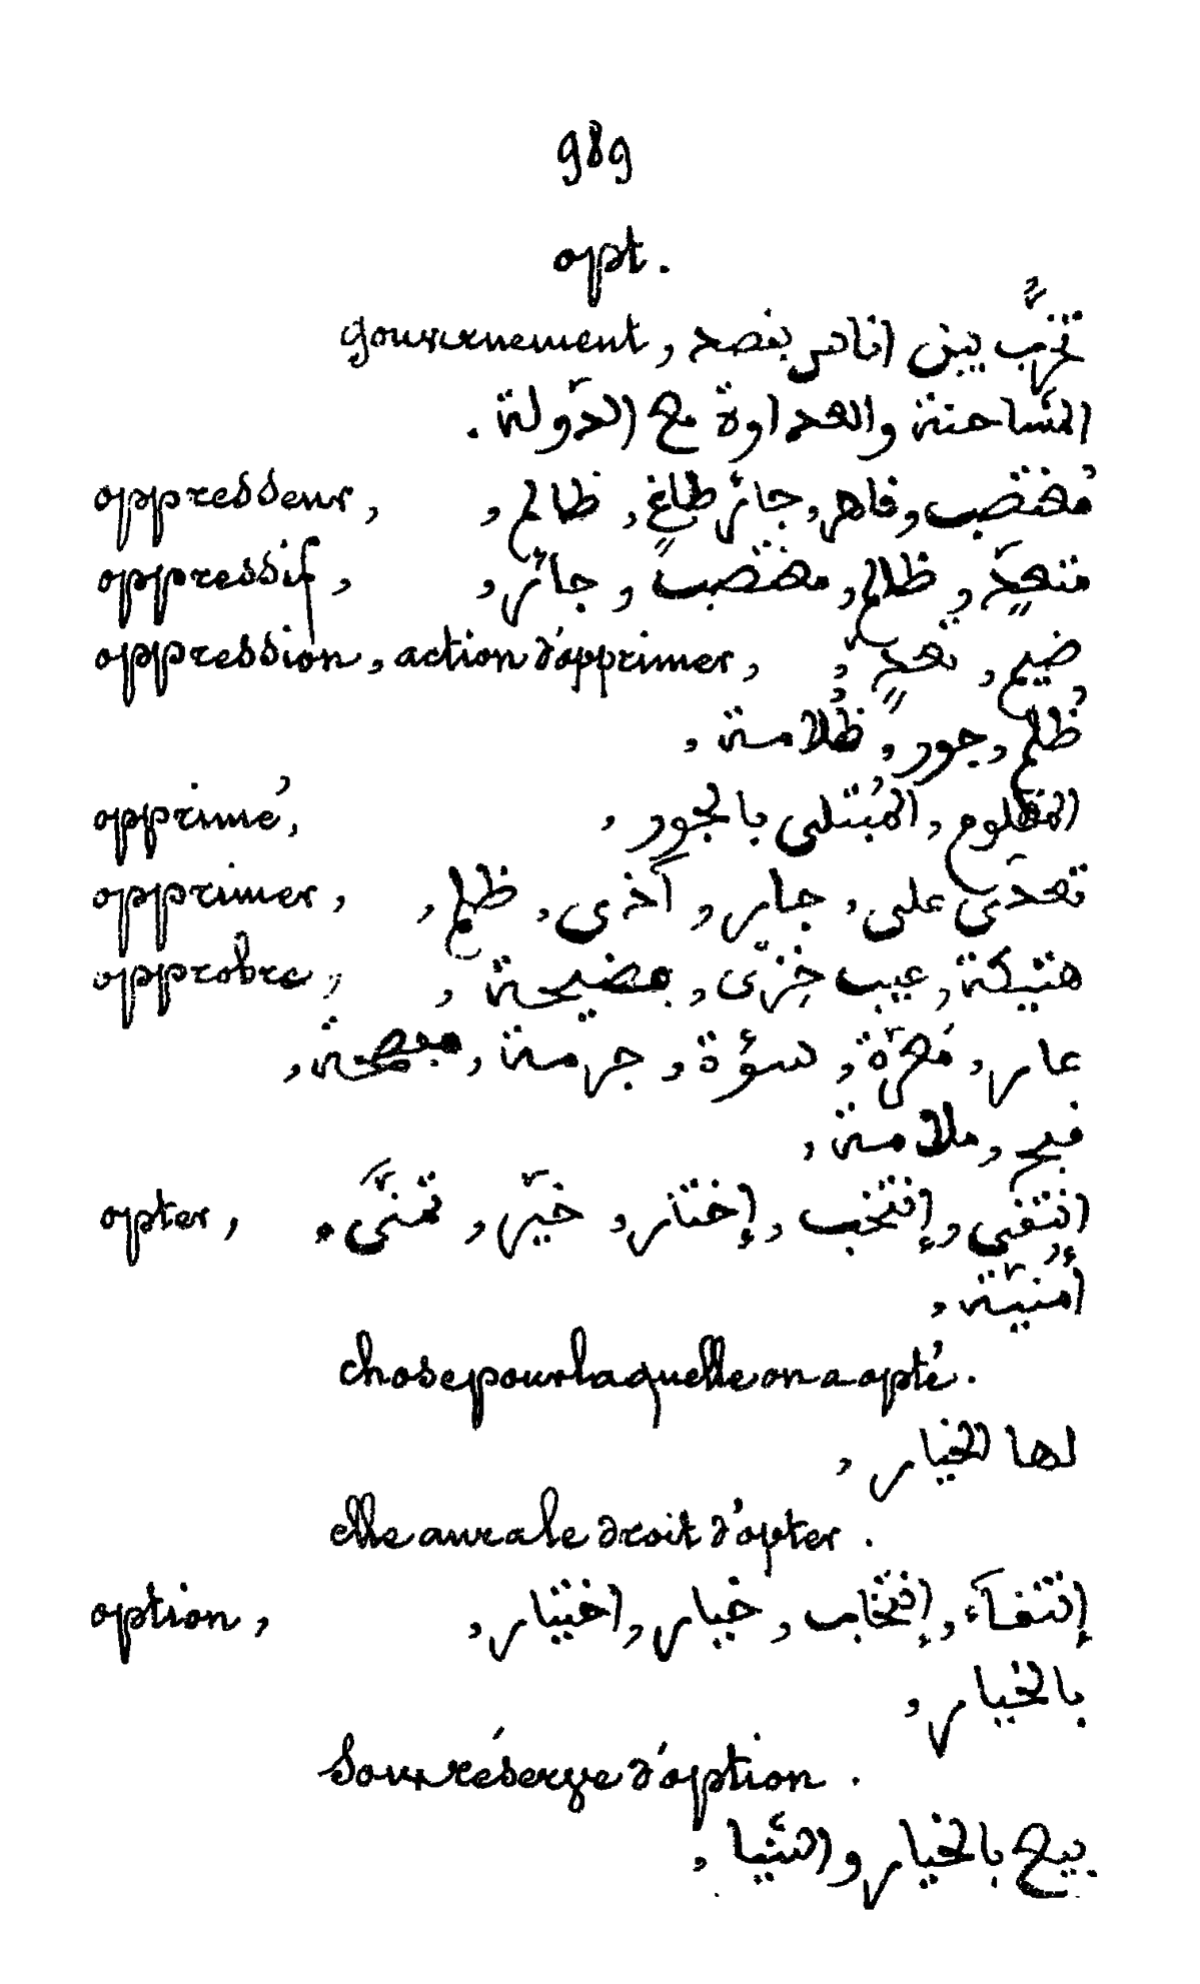 989
opt.
gouvernement, تحزّب بين اناس بقصد
المشاحنة والعداوة مع الدّولة.
oppresseur, مُغتصب, قاهر, جائر طاغٍ, ظالم,
oppressif, متعدٍّ, ظالم, مغتصب, جائر,
oppression, action d'opprimer, ضيم, تعدٍّ,
ظُلم, جور, ظُلامة,
opprimé, المظلوم, المُبتلى بالجور,
opprimer, تعدّى على, جار, آذى, ظلم,
opprobre, هتيكة, عيب خِزى, فضيحة,
عار, مَعرّة, سؤة, جرمة,
قبح, ملامة,
opter, إنتقى, إنتخب, إختار, خيّر, تمنّى.
أُمنيّة,
chose pour laquelle on a opté.
لها الخيار,
elle aura le droit d'opter.
option, إنتقآء, إنتخاب, خيار, اختيار,
بالخيار,
Sous réserve d'option.
بيع بالخيار والثنيا,